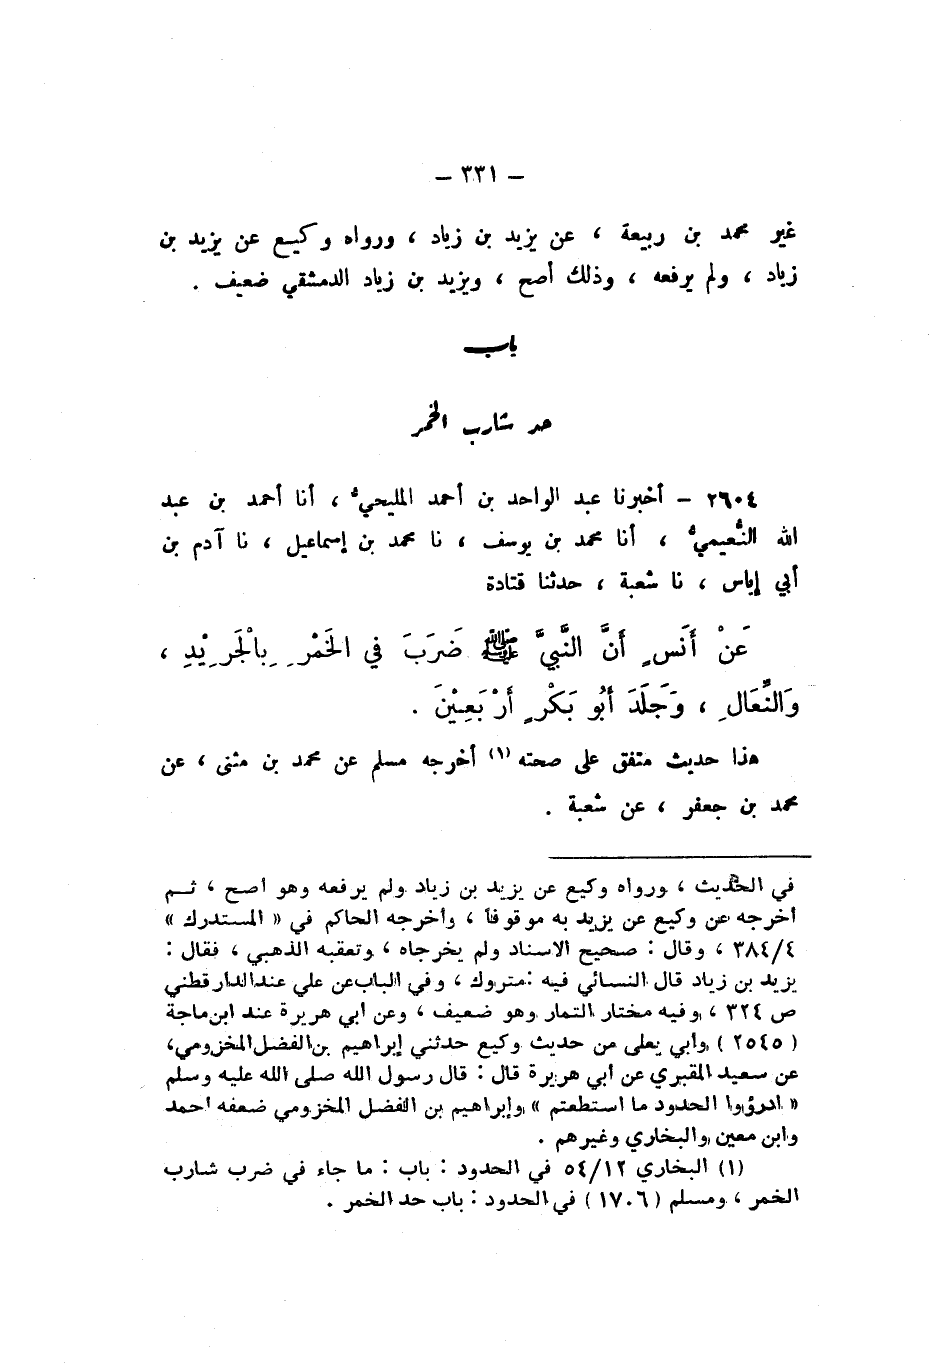 – ٣٣١ –
غير محمد بن ربيعة ، عن يزيد بن زياد ، ورواه وكيع عن يزيد بن
زياد ، ولم يرفعه ، وذلك أصح ، ويزيد بن زياد الدمشقي ضعيف .
باب
حد شارب الخمر
٢٦٠٤ – أخبرنا عبد الواحد بن أحمد المليحيُّ ، أنا أحمد بن عبد
الله النُّعيميُّ ، أنا محمد بن يوسف ، نا محمد بن إسماعيل ، نا آدم بن
أبي إياس ، نا شعبة ، حدثنا قتادة
عَنْ أَنَسٍ أَنَّ النَّبِيَّ ﷺ ضَرَبَ فِي الخَمْرِ بِالْجَرِيْدِ ،
وَالنِّعَالِ ، وَجَلَدَ أَبُو بَكْرٍ أَرْبَعِيْنَ .
هذا حديث متفق على صحته (١) أخرجه مسلم عن محمد بن مثنى ، عن
محمد بن جعفر ، عن شعبة .
في الحديث ، ورواه وكيع عن يزيد بن زياد ولم يرفعه وهو أصح ، ثم
أخرجه عن وكيع عن يزيد به موقوفاً ، وأخرجه الحاكم في « المستدرك »
٣٨٤/٤ ، وقال : صحيح الاسناد ولم يخرجاه ، وتعقبه الذهبي ، فقال :
يزيد بن زياد قال النسائي فيه : متروك ، وفي الباب عن علي عند الدارقطني
ص ٣٢٤ ، وفيه مختار التمار وهو ضعيف ، وعن أبي هريرة عند ابن ماجة
( ٢٥٤٥ ) وأبي يعلى من حديث وكيع حدثني إبراهيم بن الفضل المخزومي،
عن سعيد المقبري عن أبي هريرة قال : قال رسول الله صلى الله عليه وسلم
« ادرؤوا الحدود ما استطعتم » وإبراهيم بن الفضل المخزومي ضعفه احمد
وابن معين والبخاري وغيرهم .
(١) البخاري ٥٤/١٢ في الحدود : باب : ما جاء في ضرب شارب
الخمر ، ومسلم ( ١٧٠٦ ) في الحدود : باب حد الخمر .